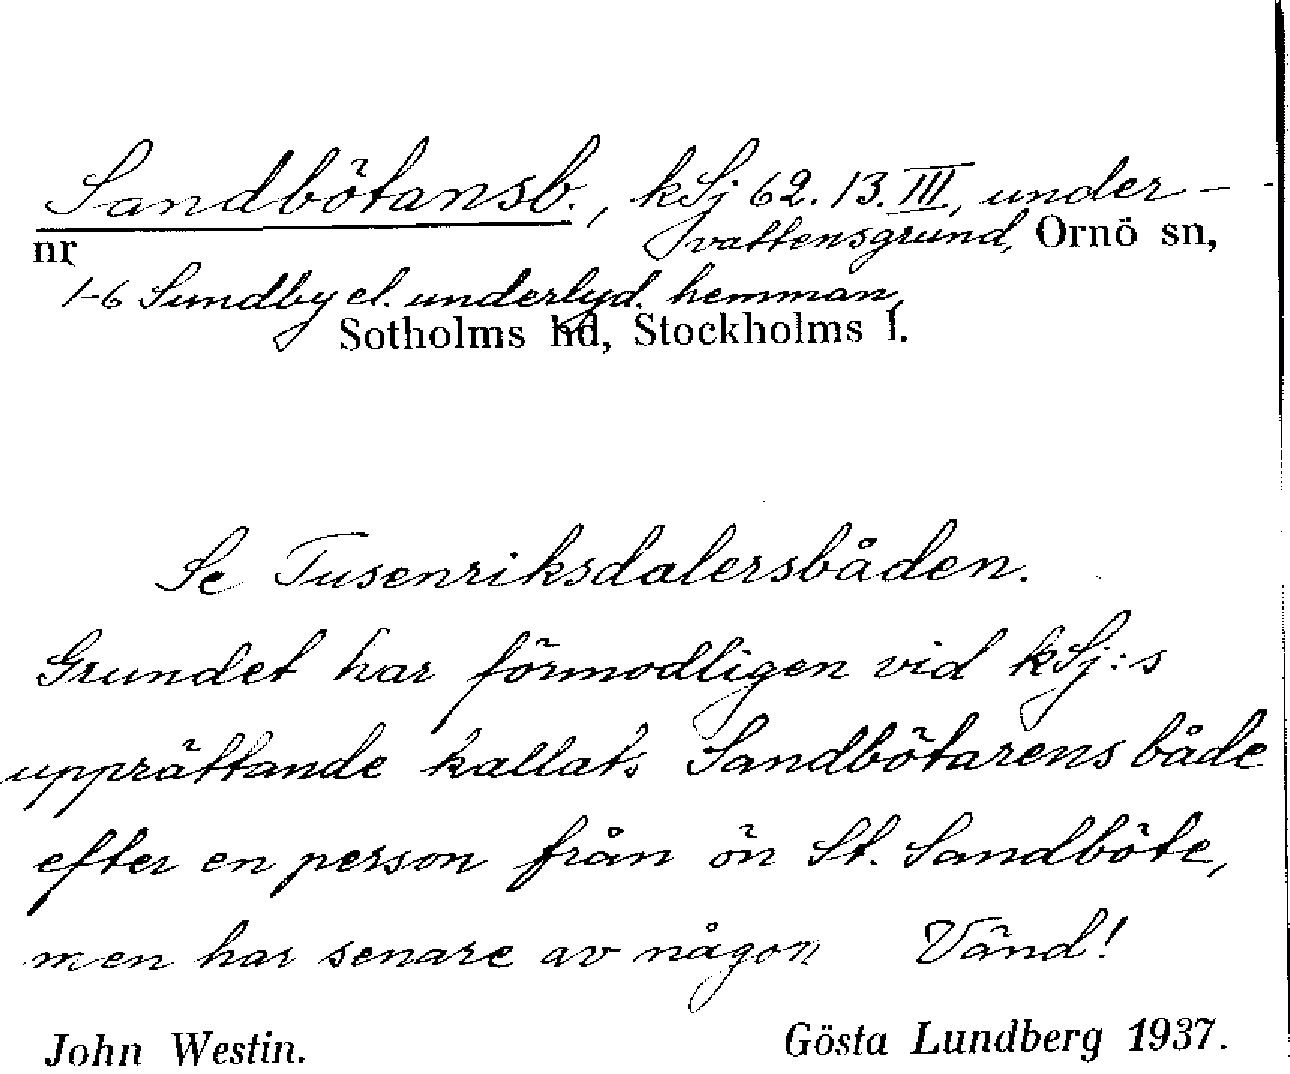 Sandbötansb., kSj 62. 13. III, under-
vattensgrund, Ornö sn,
nr
1-6 Sundby el. underlyd. hemman,
Sotholms hd, Stockholms l.
Se Tusenriksdalersbåden.
Grundet har förmodligen vid kSj:s
upprättande kallats Sandbötarens både
efter en person från ön St. Sandböte,
men har senare av någon Vänd!
John Westin. Gösta Lundberg 1937.